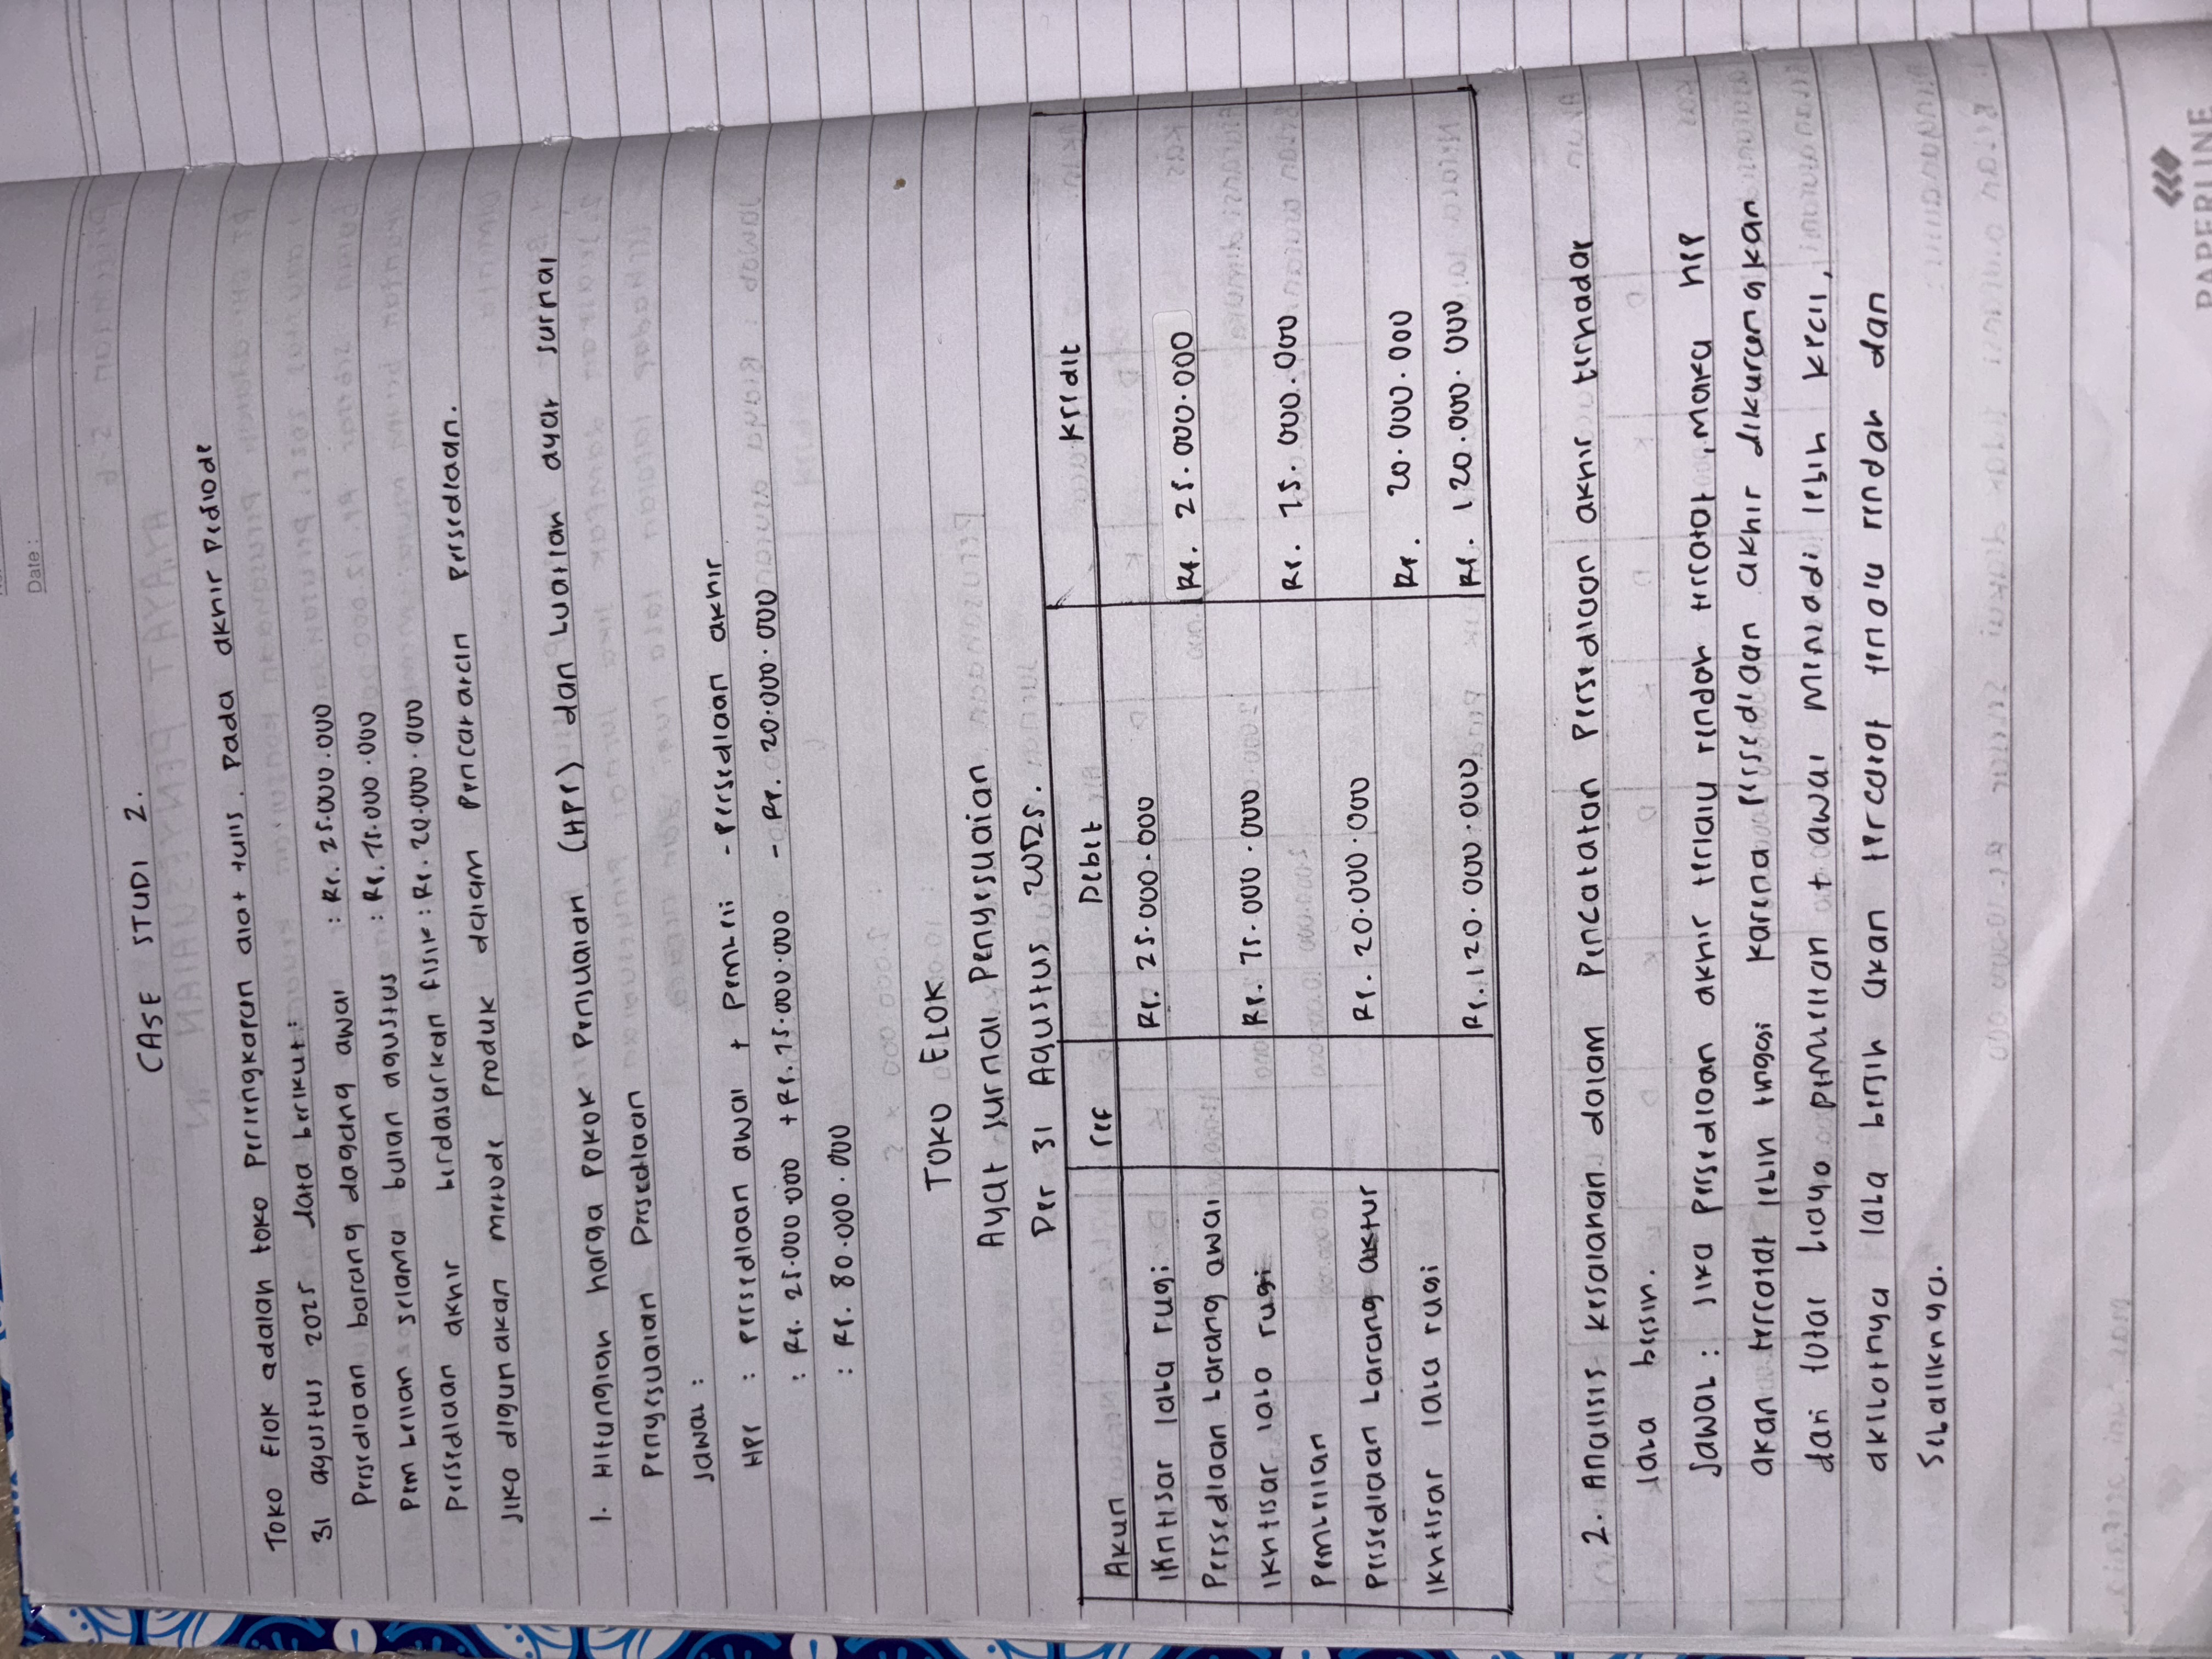 Date :
CASE STUDI 2.
Toko Elok adalah toko perlengkapan alat tulis. Pada akhir Pediode
31 agustus 2025 data berikut:
Persediaan barang dagang awal : Rp. 25.000.000
Pembelian selama bulan agustus : Rp. 75.000.000
Persediaan akhir berdasarkan fisik : Rp. 20.000.000
Jika digunakan metode produk dalam pencatatan persediaan.
1. Hitunglah harga pokok penjualan (HPP) dan buatlah ayat jurnal
Penyesuaian Persediaan
Jawab :
HPP : Persediaan awal + Pembeli - Persediaan akhir
: Rp. 25.000.000 + Rp. 75.000.000 - Rp. 20.000.000
: Rp. 80.000.000
TOKO ELOK
Ayat Jurnal Penyesuaian
Per 31 Agustus 2025.
Akun ref Debit Kredit
Ikhtisar laba rugi Rp. 25.000.000
Persediaan barang awal Rp. 25.000.000
Ikhtisar laba rugi Rp. 75.000.000
Pembelian Rp. 75.000.000
Persediaan barang Rp. 20.000.000
Ikhtisar laba rugi Rp. 20.000.000
Rp. 120.000.000 Rp. 120.000.000
2. Analisis kesalahan dalam Pencatatan Persediaan akhir terhadap
laba bersih.
Jawab : Jika persediaan akhir terlalu rendah tercatat, maka HPP
akan tercatat lebih tinggi karena persediaan akhir dikurangkan
dari total biaya pembelian + awal menjadi lebih kecil,
akibatnya laba bersih akan tercatat terlalu rendah dan
Sebaliknya.
PAPERLINE